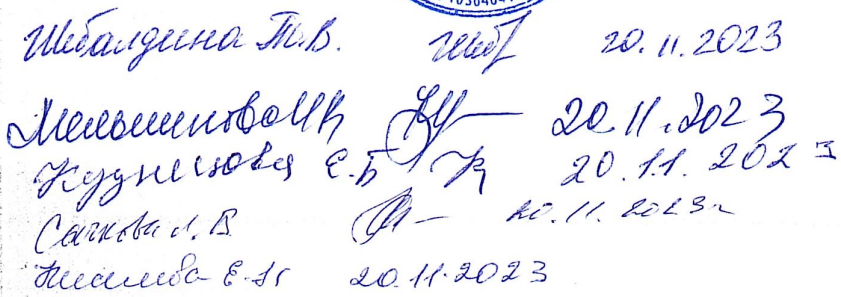 Шебалдина Т.В. Шеб 20.11.2023
Мельникова И В 20.11.2023
Кузнецова Е.Б 20.11.2023
Сачкова Л.В 20.11.2023г
Е. 20.11.2023